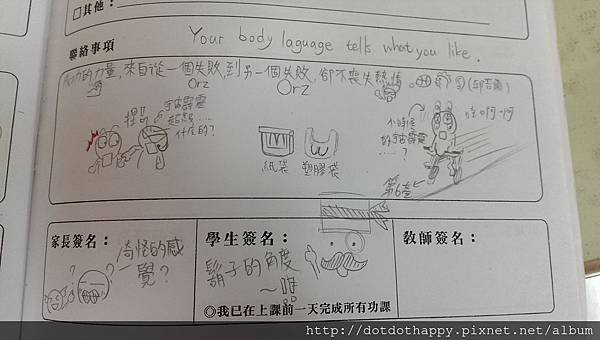 □其他：
聯絡事項
Your body laguage tells what you like.
的力量，來自從一個失敗，到另一個失敗，卻不喪失熱情
Orz
Orz
(邱吉爾)
宇宙霹靂
超級…
什麼的？
小時候
的宇宙霹靂
……？
哈啊啊
紙袋
塑膠袋
家長簽名：
奇怪的感
覺？
學生簽名：
鬍子的角度
～
◎我已在上課前一天完成所有功課
教師簽名：
http://dotdothappy.pixnet.net/album